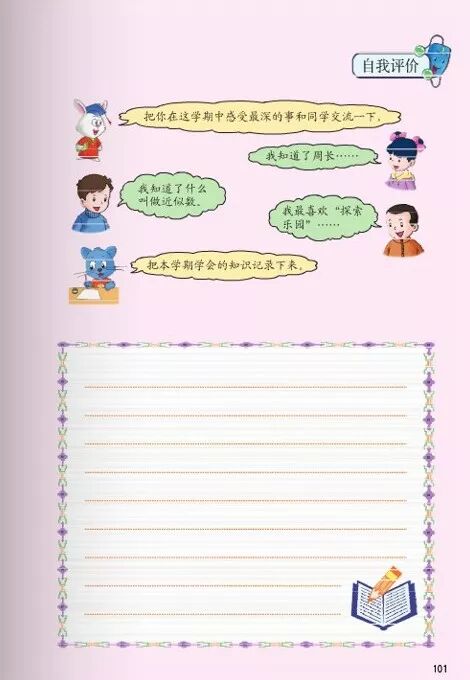 自我评价
把你在这学期中感受最深的事和同学交流一下。
我知道了周长……
我知道了什么
叫做近似数。
我最喜欢“探索
乐园”……
把本学期学会的知识记录下来。
101